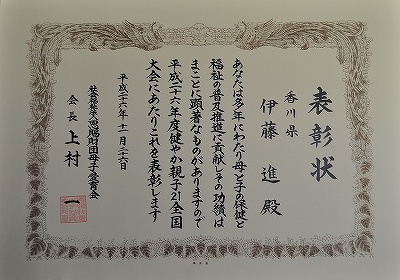 表彰状
香川県
伊藤 進 殿
あなたは多年にわたり母と子の保健と
福祉の普及推進に貢献しその功績は
まことに顕著なものがありますので
平成二十六年度健やか親子21全国
大会にあたりこれを表彰します
平成二十六年十一月二十六日
社会福祉法人恩賜財団母子愛育会
会長 上村 一